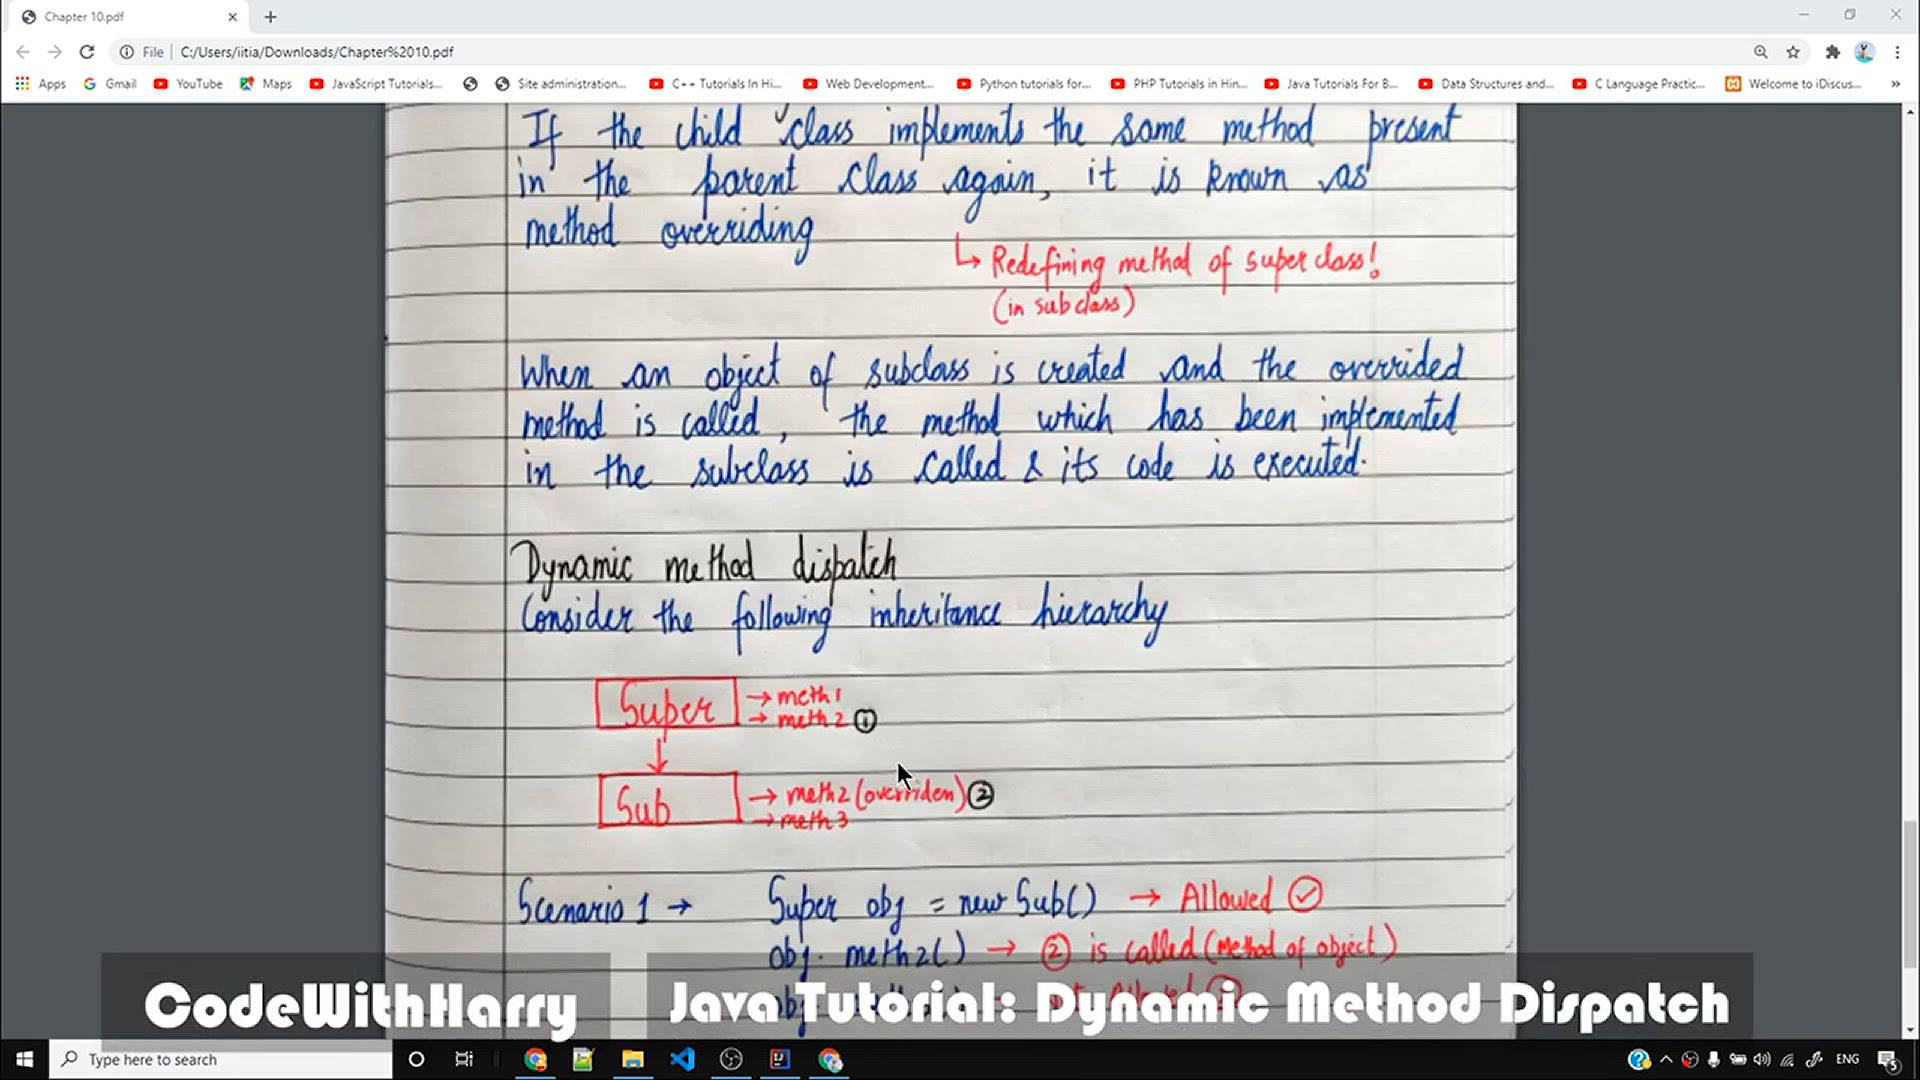 Chapter 10.pdf
File C:/Users/iitia/Downloads/Chapter%2010.pdf
Apps Gmail YouTube Maps JavaScript Tutorials... Site administration... C++ Tutorials In Hi... Web Development... Python tutorials for... PHP Tutorials in Hin... Java Tutorials For B... Data Structures and... C Language Practic... Welcome to iDiscus... »
If the child class implements the same method present
in the parent class again, it is known as
method overriding
↳ Redefining method of super class!
(in subclass)
When an object of subclass is created and the overrided
method is called, the method which has been implemented
in the subclass is called & its code is executed.
Dynamic method dispatch
Consider the following inheritance hierarchy
Super → meth1
→ meth2 ①
Sub → meth2 (overriden) ②
→ meth3
Scenario 1 → Super obj = new Sub() → Allowed
obj. meth2() → ② is called (Method of object)
CodeWithHarry Java Tutorial: Dynamic Method Dispatch
Type here to search
ENG
5